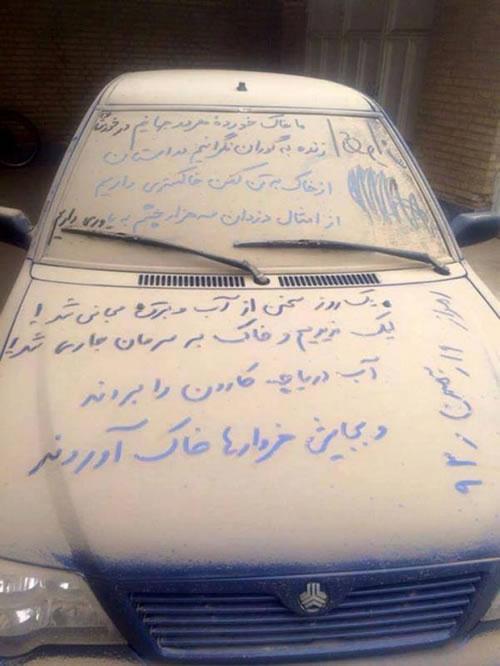 ما خاک خوردهٔ هر دو جهانیم در خوزستان
زنده به گوران نگرانیم در استان
از خاک به تن کفن خاکستری داریم
از امثال دزدان سه هزار چشم به یاوری داریم
یک روز سخنی از آب و برق مجانی شد!
لیک دیدیم و خاک به سرمان جاری شد!
آب دریاچه کارون را بردند
و بجایش خروارها خاک آوردند
اهواز ۱۹ بهمن ۹۳